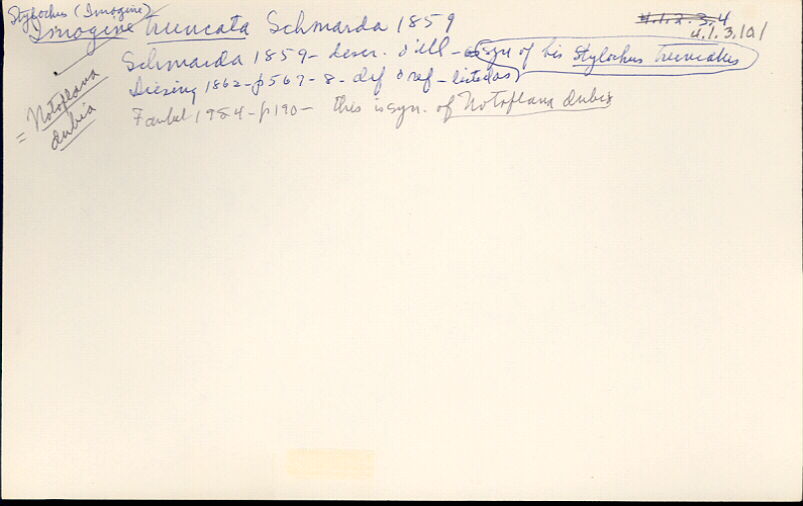 Stylochus (Imogine)
Imogine truncata Schmarda 1859
4.1.2.3.4
4.1.3.1a1
Schmarda 1859 - descr. & ill - as syn of his Stylochus truncatus
Diesing 1862 - p567-8 - def & ref - listed as
Faubel 1954 - p190 - this is syn. of Notoplana dubia
= Notoplana dubia